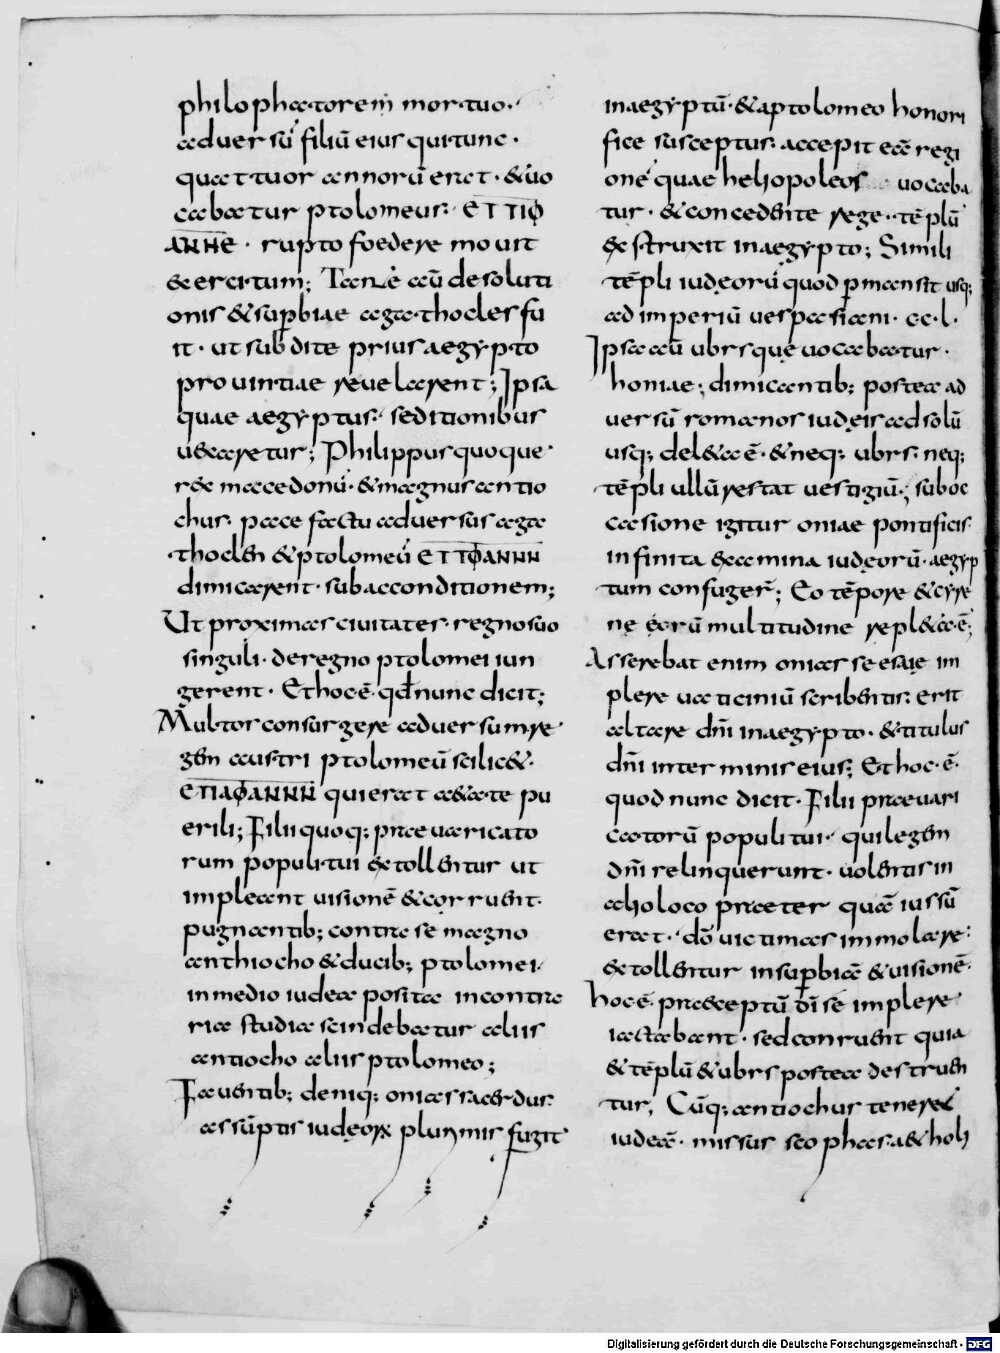 philophatorem mortuo·
aduersū filiū eius qui tunc·
quattuor annorū erat· & uo
cabatur ptolomeus· ΕΤΤΙΦ
ΑΝΗΕ· rupto foedere mouit
exercitum; Tantę aū desoluti
onis & supbiae agathocles fu
it· ut subdite prius aegypto
prouintiae reuelarent; Ipsa
quae aegyptus· seditionibus
uexaretur; Philippus quoque
rex macedonū· & magnus antio
chus· pace factu aduersus aga
thoclen & ptolomeū ΕΤΤΦΑΝΝΝ
dimicarent· sub acconditionem;
Ut proximas ciuitates regno suo
singuli· de regno ptolomei iun
gerent· Et hoc ē· qđ nunc dicit;
Multor consurgere aduersum re
gem austri ptolomeū scilic&·
ΕΤΙΑΦΑΝΝΝ qui erat aetate pu
erili; Filii quoq; praeuaricato
rum populi tui extollentur ut
impleant uisionē & corruent·
pugnantib; contra se magno
anthiocho & ducib; ptolomei·
in medio iudea posita in contra
ria studia scindebatur alius
antiocho alius ptolomeo;
Fauentib; deniq; onias sacerdus·
assūptis iudęorx plurymis fugit
in aegyptū· & a ptolomeo honori
fice susceptus· accepit eā regi
onē quae heliopoleos uocaba
tur· & concedente rege· tēplū
exstruxit in aegypto; Simili
tēpli iudęorū quod pmansit usq;
ad imperiū uespasiani· cc·l·
Ipsa aū ubrs quę uocabatur·
honiae; dimicantib; postea ad
uersū romanos iudęis ad solū
usq; del&a ē· & neq; ubrs· neq;
tēpli ullū restat uestigiū; sub oc
casione igitur oniae pontificis·
infinita examina iudęorū· aegyp
tum confuger̄; Eo tēpore & cyre
ne ęorū multitudine repl&a ē;
Asserebat enim onias se esaię im
plere uaticiniū scribentis· erit
altare dn̄i in aegypto· & titulus
dn̄i inter minis eius; Et hoc· ē·
quod nunc dicit· Filii praeuari
catorū populi tui· qui legem
dn̄i relinquerunt· uolentis in
aho loco praeter quā iussū
erat· dō uictimas immolare·
extollentur in supbiā & uisionē·
hoc ē· praeceptū dī se implere
iactabant· sed conruent quia
& tēplū & ubrs postea destruen
tur; Cūq; antiochus tenere
iudeā· missus scophas a&holi